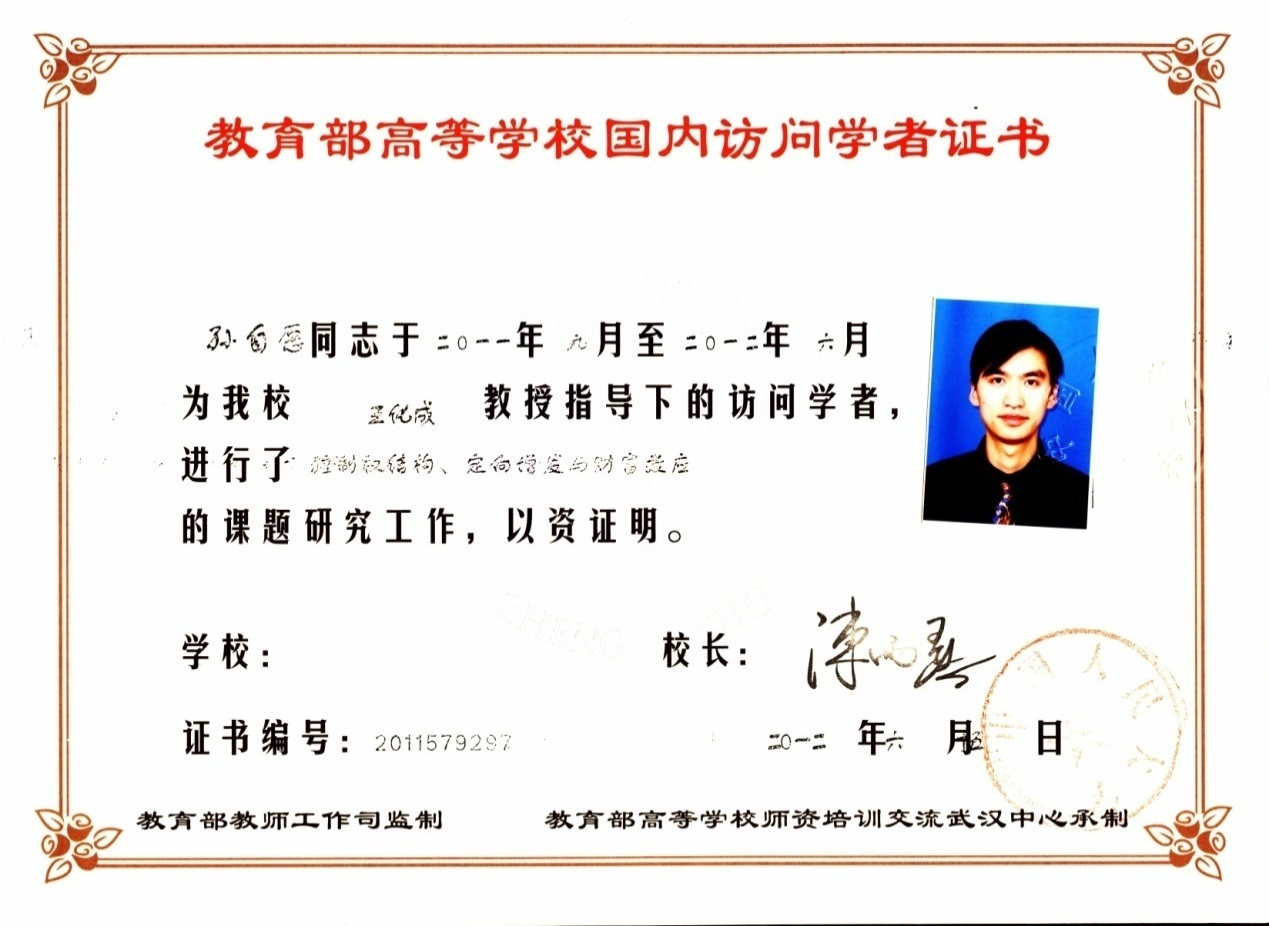 教育部高等学校国内访问学者证书
孙自愿同志于二〇一一年 九月至二〇一二年 六月
为我校 王化成 教授指导下的访问学者，
进行了 控制权结构、定向增发与财富效应
的课题研究工作，以资证明。
ZHENG SHU
学校： 校长：
证书编号：2011579297 二〇一二 年六 月 日
教育部教师工作司监制 教育部高等学校师资培训交流武汉中心承制